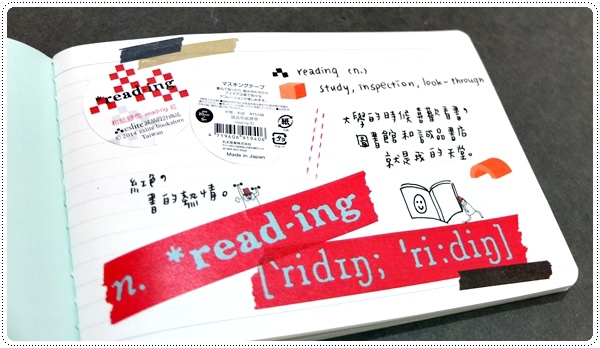 *read-ing
和紙膠帶 reading 紅
eslite誠品設計商品
© 2014 eslite bookstore
Taiwan
マスキングテープ
Made in Japan
紙
reading (n.)
study, inspection, look-through
大學的時候喜歡看書,
圖書館和誠品書店
就是我的天堂。
紅色,
書的熱情。
n. *read·ing
[ˋridɪŋ; ˈri:diŋ]